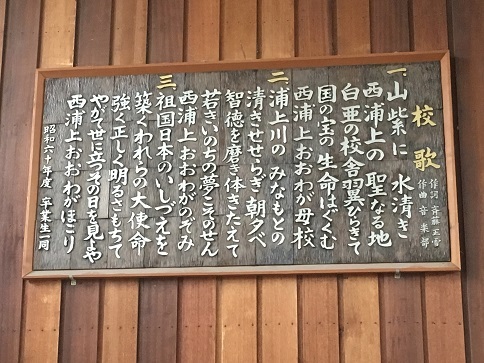 校歌
作詞 斉藤正雪
作曲 音楽部
一、山紫に 水清き
西浦上の 聖なる地
白亜の校舎 翼ひらきて
国の宝の 生命はぐくむ
西浦上 おおわが母校
二、浦上川の みなもとの
清きせせらぎ 朝夕べ
智徳を磨き 体きたえて
若きいのちの 夢こそのせん
西浦上 おおわがのぞみ
三、祖国日本の いしづえを
築くわれらの 大使命
強く正しく 明るさもちて
やがて世に立つ その日を見まや
西浦上 おおわがほこり
昭和六十年度 卒業生一同